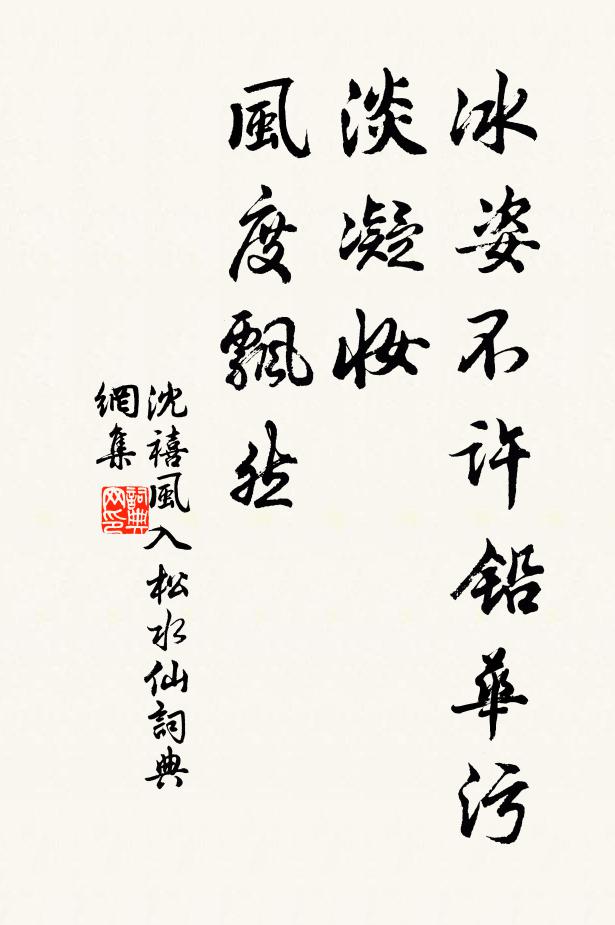 冰姿不许铅華污
淡凝妝
風度飄然
沈禧風入松水仙詞典
網集
詞典
网印